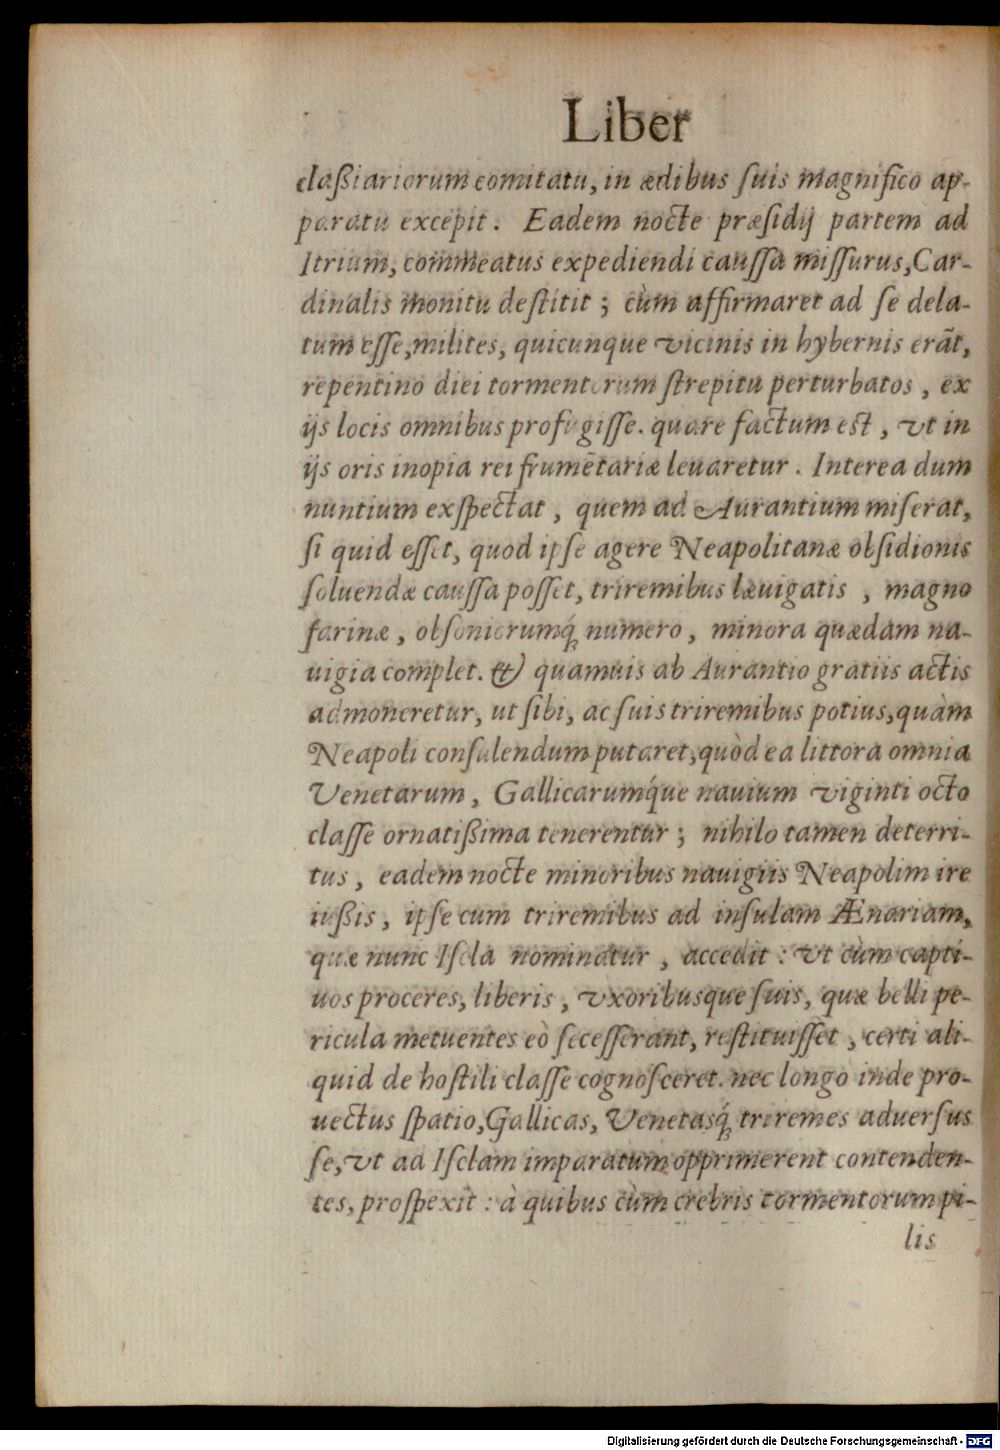 Liber
claßiariorum comitatu, in ædibus ſuis magnifico ap-
paratu excepit. Eadem nocte præſidij partem ad
Itrium, commeatus expediendi cauſſa miſſurus, Car-
dinalis monitu deſtitit ; cùm affirmaret ad ſe dela-
tum eſſe, milites, quicunque vicinis in hybernis erāt,
repentino diei tormentorum ſtrepitu perturbatos , ex
ijs locis omnibus profugiſſe. quare factum est , vt in
ijs oris inopia rei frumētariæ leuaretur . Interea dum
nuntium exſpectat , quem ad Aurantium miſerat,
ſi quid eſſet, quod ipſe agere Neapolitanæ obſidionis
ſoluendæ cauſſa poſſet, triremibus læuigatis , magno
farinæ , obſoniorumq́; numero , minora quædam na-
uigia complet. & quamuis ab Aurantio gratiis actis
admoneretur, ut ſibi, ac ſuis triremibus potius, quàm
Neapoli conſulendum putaret, quòd ea littora omnia
Venetarum , Gallicarumq́ue nauium viginti octo
claſſe ornatißima tenerentur ; nihilo tamen deterri-
tus , eadem nocte minoribus nauigiis Neapolim ire
iußis , ipſe cum triremibus ad inſulam Ænariam,
quæ nunc Iſcla nominatur , accedit : vt cùm capti-
uos proceres, liberis , vxoribusque ſuis, quæ belli pe-
ricula metuentes eò ſeceſſerant, reſtituiſſet , certi ali-
quid de hoſtili claſſe cognoſceret. nec longo inde pro-
uectus ſpatio, Gallicas, Venetasq́; triremes aduerſus
ſe, vt ad Iſclam imparatum opprimerent contenden-
tes, proſpexit : à quibus cùm crebris tormentorum pi-
lis
Digitalisierung gefördert durch die Deutsche Forschungsgemeinschaft - DFG